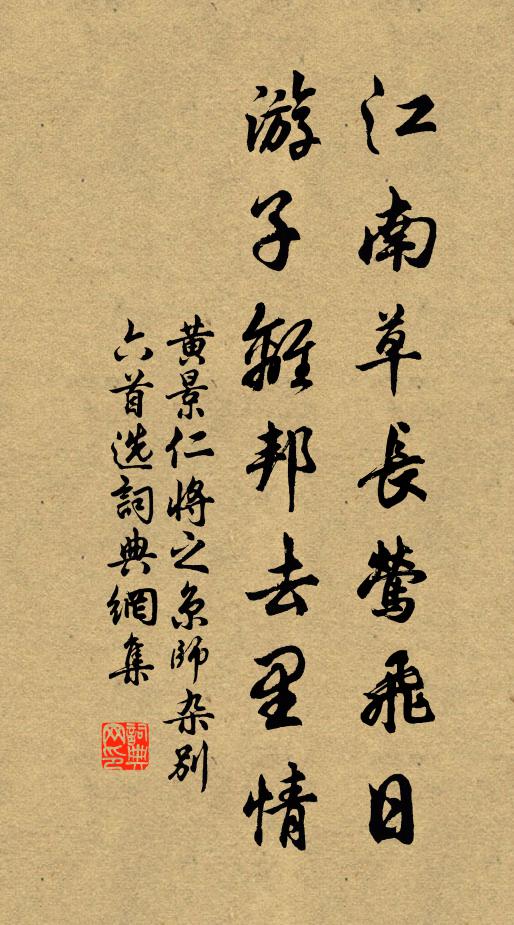 江南草長鶯飛日
游子離邦去里情
黄景仁将之京師杂别
六首选詞典網集
詞典
网印